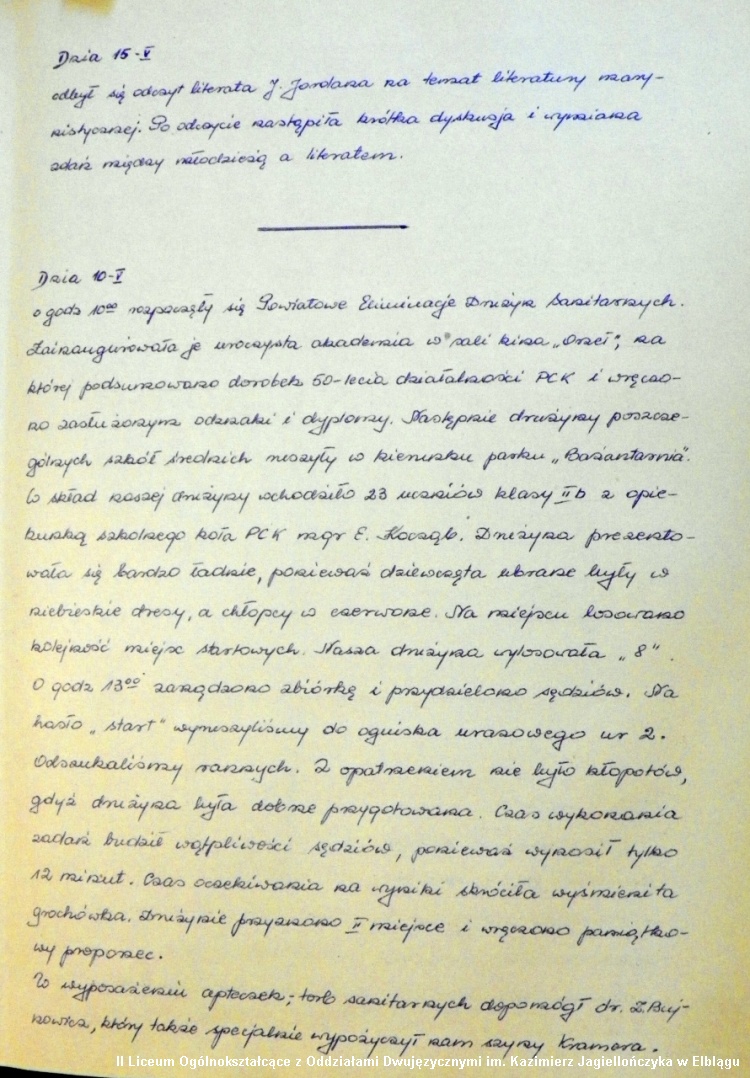 Dnia 15-V
odbył się odczyt literata J. Jordana na temat literatury mary-
nistycznej. Po odczycie nastąpiła krótka dyskusja i wymiana
zdań między młodzieżą a literatem.
Dnia 10-V
o godz 10⁰⁰ rozpoczęły się Powiatowe Eliminacje Drużyn Sanitarnych.
Zainaugurowała je uroczysta akademia w sali kina „Orzeł”, na
której podsumowano dorobek 50-lecia działalności PCK i wręczo-
no zasłużonym odznaki i dyplomy. Następnie drużyny poszcze-
gólnych szkół średnich ruszyły w kierunku parku „Bażantarnia”.
W skład naszej drużyny wchodziło 23 uczniów klasy IIb z opie-
kunką szkolnego koła PCK mgr E. Kocząb. Drużyna prezento-
wała się bardzo ładnie, ponieważ dziewczęta ubrane były w
niebieskie dresy, a chłopcy w czerwone. Na miejscu losowano
kolejność miejsc startowych. Nasza drużyna wylosowała „8”.
O godz 13⁰⁰ zarządzono zbiórkę i przydzielono sędziów. Na
hasło „start” wyruszyliśmy do ogniska urazowego nr 2.
Odszukaliśmy rannych. Z opatrzeniem nie było kłopotów,
gdyż drużyna była dobrze przygotowana. Czas wykonania
zadań budził wątpliwości sędziów, ponieważ wynosił tylko
12 minut. Czas oczekiwania na wyniki skróciła wyśmienita
grochówka. Drużynie przyznano II miejsce i wręczono pamiątko-
wy proporzec.
W wyposażeniu apteczek i torb sanitarnych dopomógł dr. Z. Buj-
nowicz, który także specjalnie wypożyczył nam szyny Kramera.
II Liceum Ogólnokształcące z Oddziałami Dwujęzycznymi im. Kazimierz Jagiellończyka w Elblągu